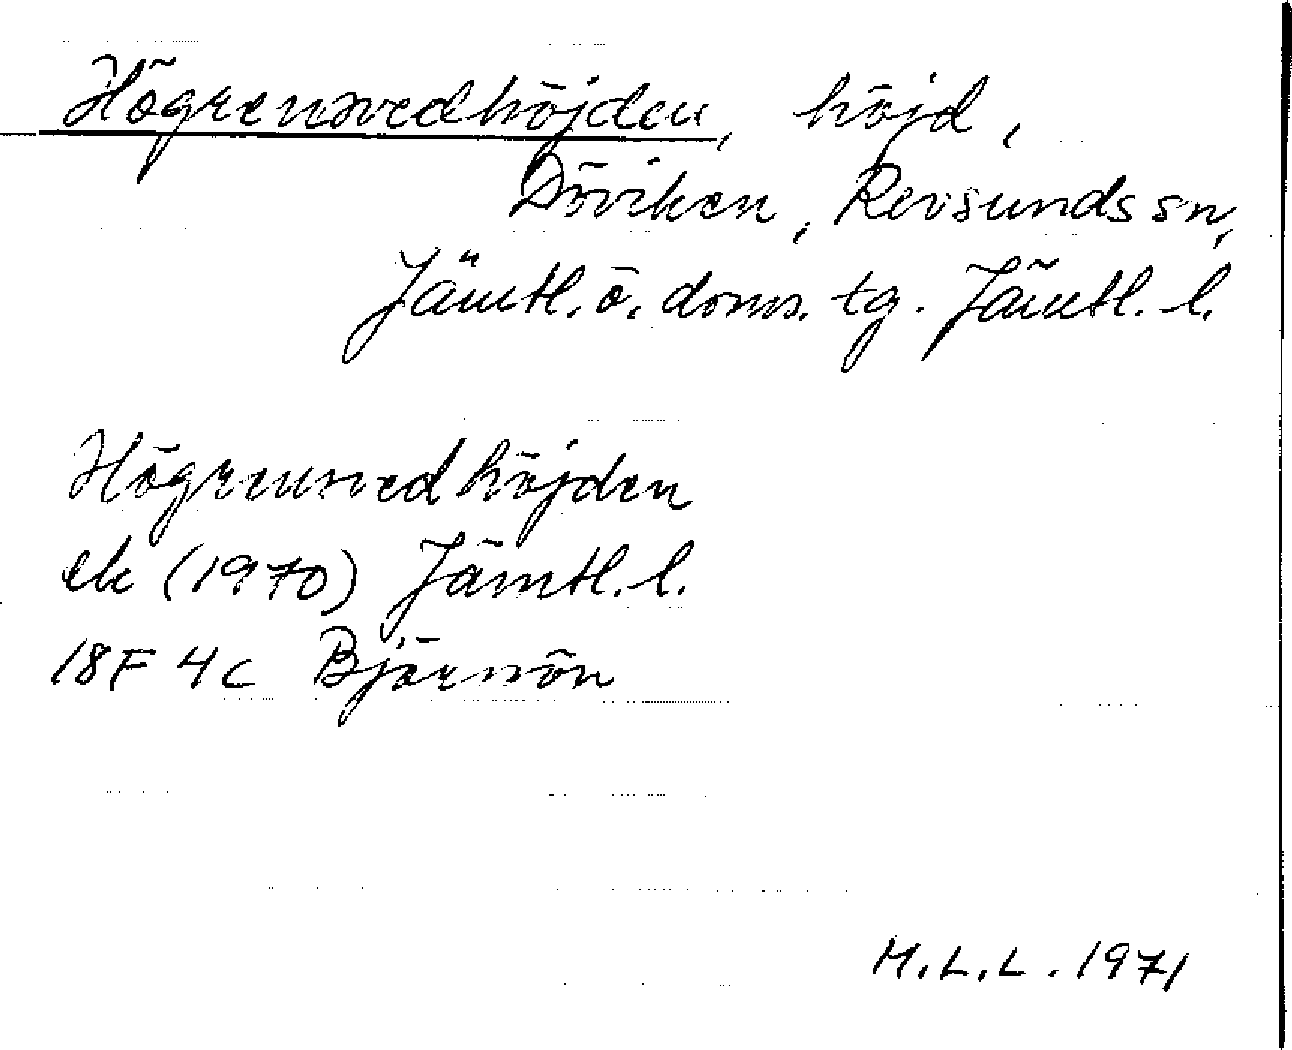 Högrensvedhöjden, höjd,
Döviken, Revsunds sn,
Jämtl. ö. doms. tg. Jämtl. l.
Högrensvedhöjden
ek (1970) Jämtl. l.
18F 4c Björnön
M.L.L. 1971